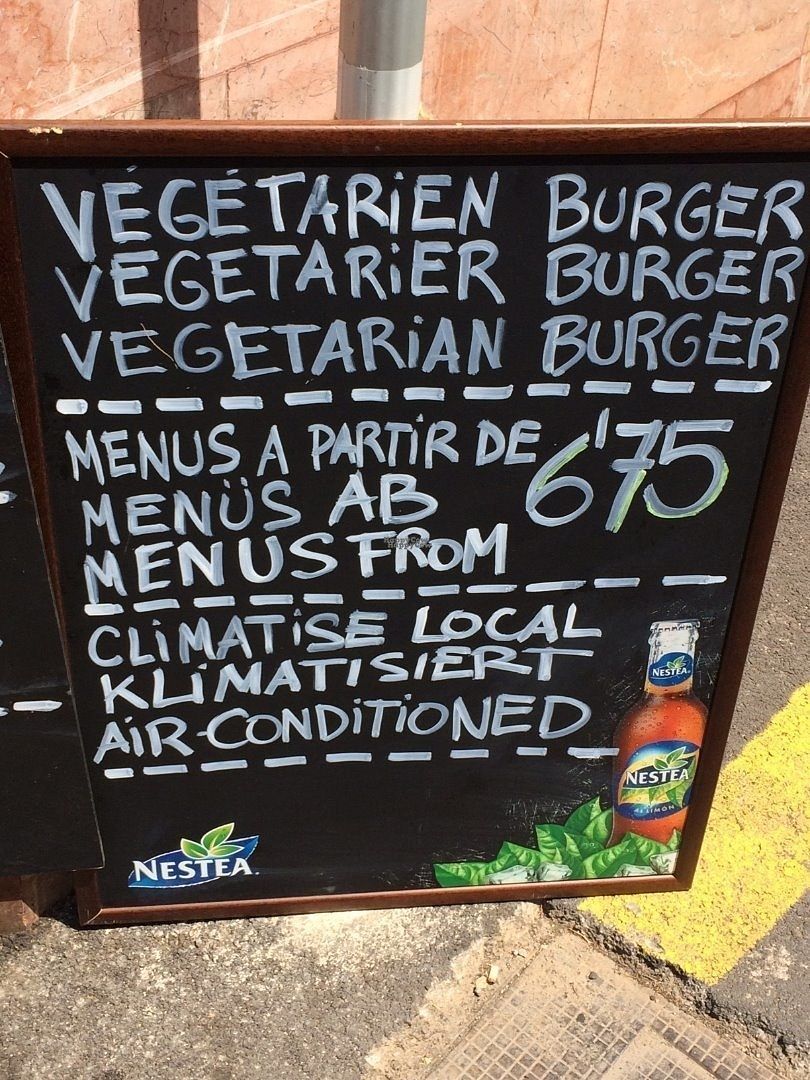 VÉGÉTARIEN BURGER
VEGETARIER BURGER
VEGETARIAN BURGER
MENUS A PARTIR DE 6'75
MENÜS AB
MENUS FROM
CLIMATISE LOCAL
KLIMATISIERT
AIR-CONDITIONED
NESTEA
NESTEA
AL LIMÓN
NESTEA